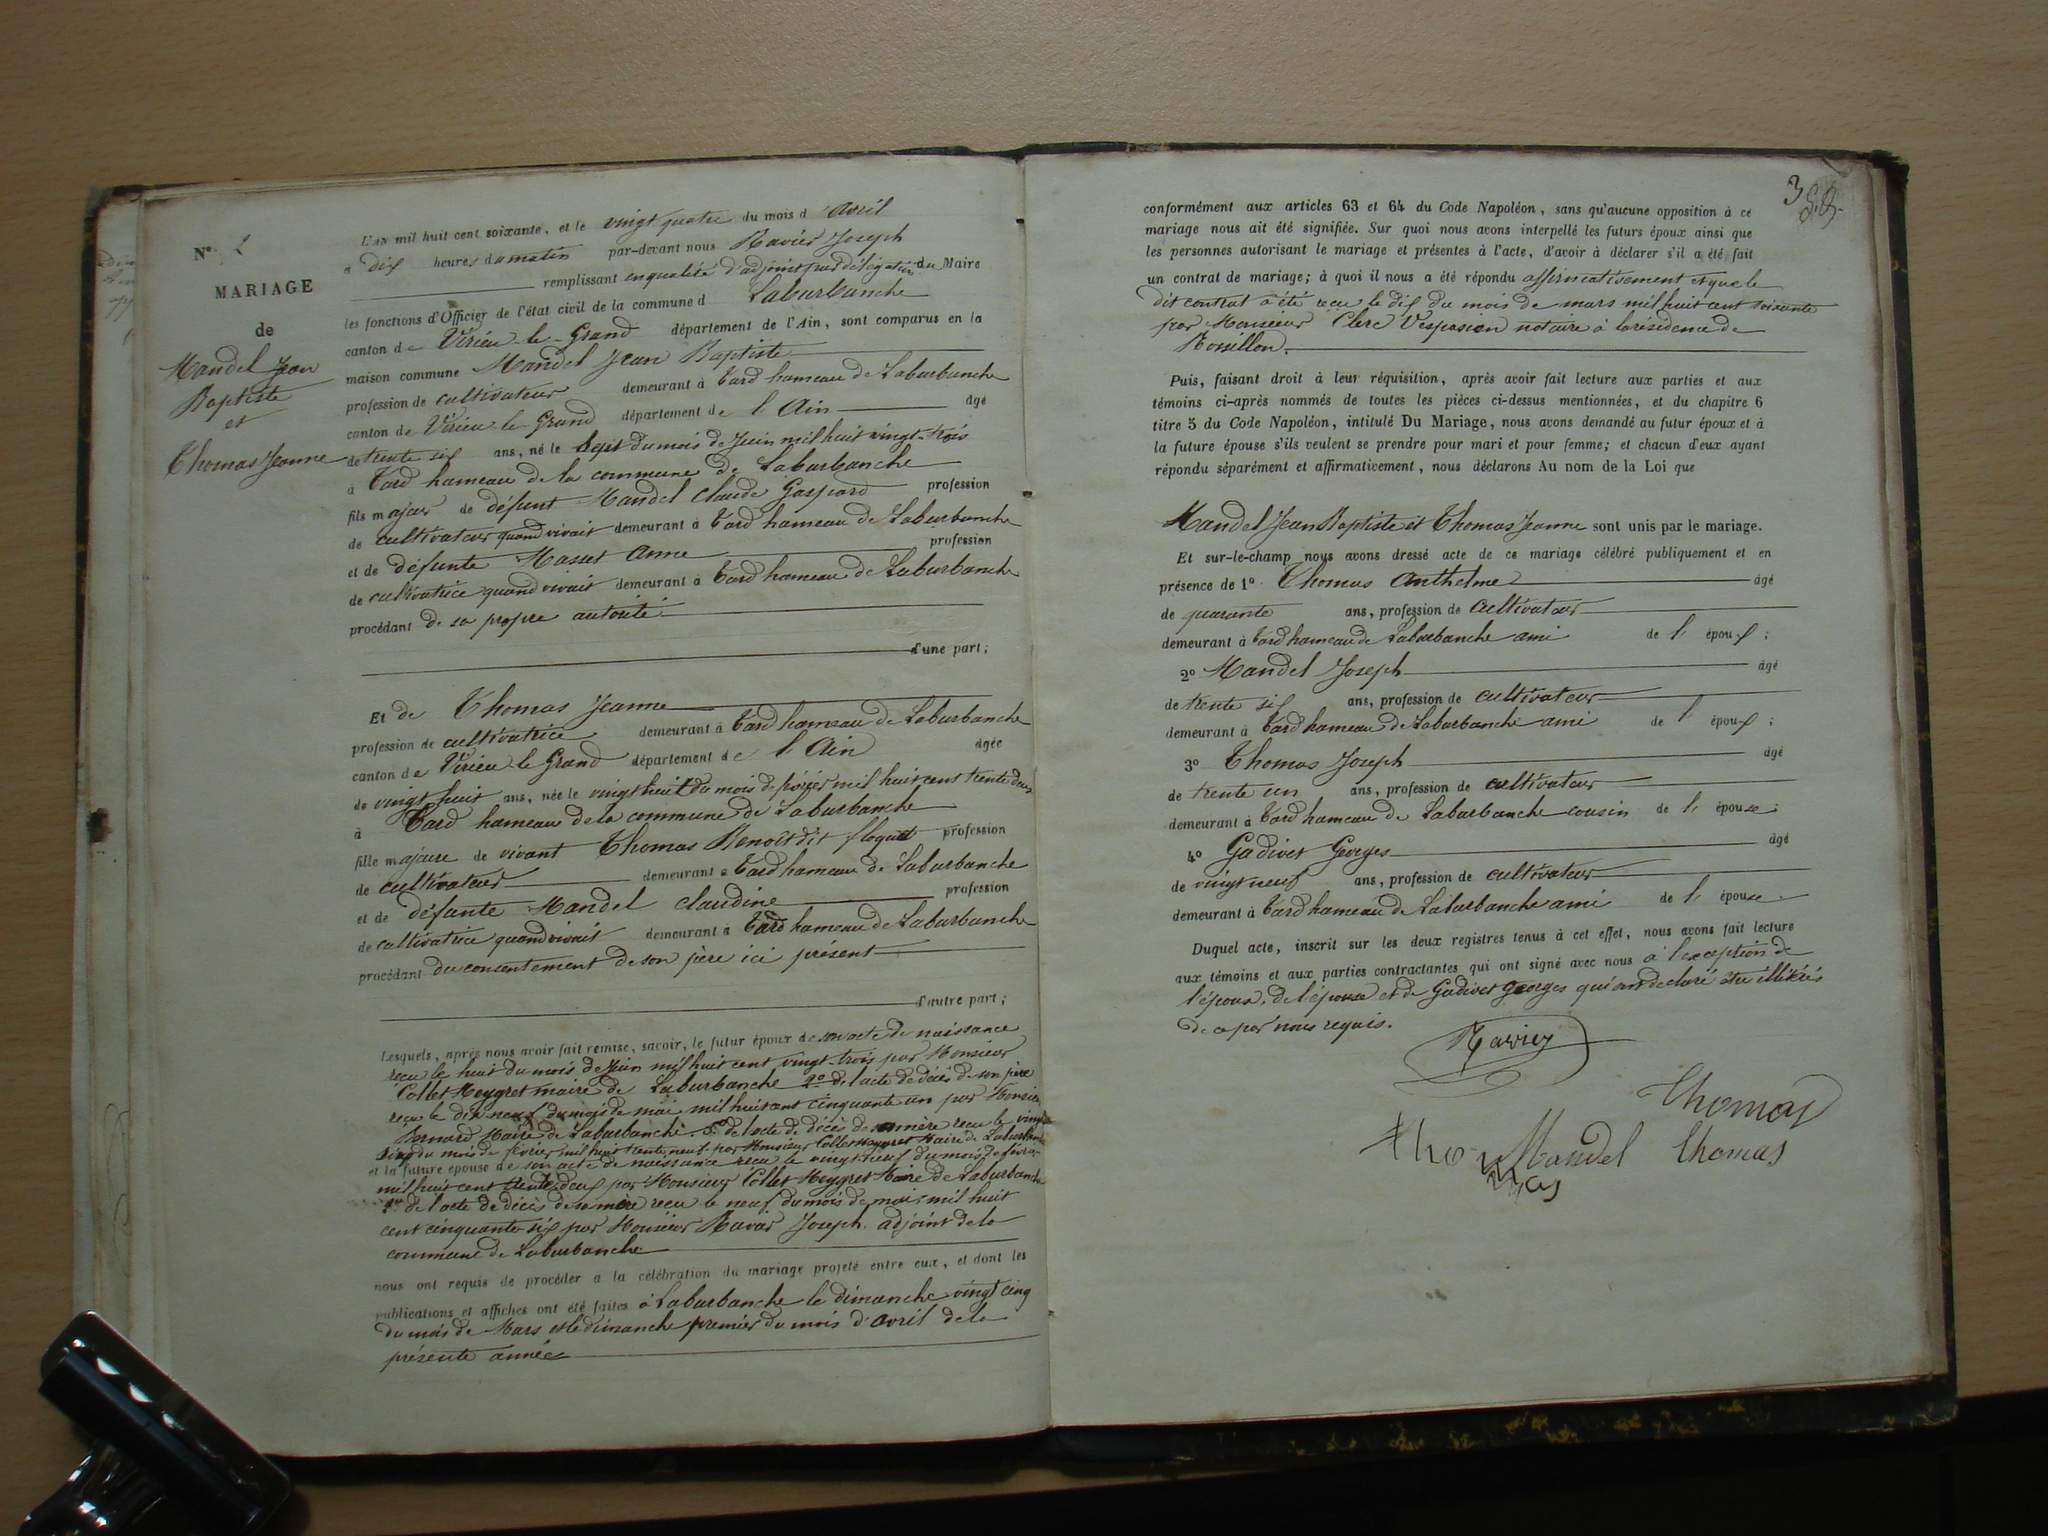 N° 2
MARIAGE
de
Mandel Jean
Baptiste
et
Thomas Jeanne
L'AN mil huit cent soixante, et le vingt quatre du mois d'Avril
à dix heures du matin par-devant nous Ravier Joseph
remplissant en qualité d'adjoint par délégation du Maire
les fonctions d'Officier de l'état civil de la commune d Laburbanche
canton de Virieu-le-Grand département de l'Ain, sont comparus en la
maison commune Mandel Jean Baptiste
profession de cultivateur demeurant à Tard hameau de Laburbanche
canton de Virieu-le-Grand département de l'Ain âgé
de trente six ans, né le Sept du mois de Juin mil huit vingt-trois
à Tard hameau de la commune de Laburbanche
fils majeur de défunt Mandel Claude Gaspard profession
de cultivateur quand vivait demeurant à Tard hameau de Laburbanche
et de défunte Masset Anne profession
de cultivatrice quand vivait demeurant à Tard hameau de Laburbanche
procédant de sa propre autorité
d'une part;
Et de Thomas Jeanne
profession de cultivatrice demeurant à Tard hameau de Laburbanche
canton de Virieu-le-Grand département de l'Ain âgée
de vingt huit ans, née le vingt huit du mois de février mil huit cent trente deux
à Tard hameau de la commune de Laburbanche
fille majeure de vivant Thomas Benoît dit profession
de cultivateur demeurant à Tard hameau de Laburbanche
et de défunte Mandel Claudine profession
de cultivatrice quand vivait demeurant à Tard hameau de Laburbanche
procédant du consentement de son père ici présent
d'autre part;
Lesquels, après nous avoir fait remise, savoir, le futur époux de son acte de naissance
reçu le huit du mois de Juin mil huit cent vingt-trois par Monsieur
Collet Meygret maire de Laburbanche 2° de l'acte de décès de son père
reçu le dix-neuf du mois de mai mil huit cent cinquante un par Monsieur
Bernard Maire de Laburbanche. 3° de l'acte de décès de sa mère reçu le vingt
cinq du mois de février mil huit trente neuf par Monsieur Collet Meygret Maire de Laburbanche
et la future épouse de son acte de naissance reçu le vingt neuf du mois de février
mil huit cent trente deux par Monsieur Collet Meygret Maire de Laburbanche
2° de l'acte de décès de sa mère reçu le neuf du mois de mai mil huit
cent cinquante six par Monsieur Ravier Joseph adjoint de la
commune de Laburbanche
nous ont requis de procéder a la célébration du mariage projeté entre eux, et dont les
publications et affiches ont été faites à Laburbanche le dimanche vingt cinq
du mois de Mars et le dimanche premier du mois d'avril de la
présente année
3
conformément aux articles 63 et 64 du Code Napoléon, sans qu'aucune opposition à ce
mariage nous ait été signifiée. Sur quoi nous avons interpellé les futurs époux ainsi que
les personnes autorisant le mariage et présentes à l'acte, d'avoir à déclarer s'il a été fait
un contrat de mariage; à quoi il nous a été répondu affirmativement et que le
dit contrat a été reçu le dix du mois de mars mil huit cent soixante
par Monsieur Clerc Vespasien notaire à la résidence de
Rossillon.
Puis, faisant droit à leur réquisition, après avoir fait lecture aux parties et aux
témoins ci-après nommés de toutes les pièces ci-dessus mentionnées, et du chapitre 6
titre 5 du Code Napoléon, intitulé Du Mariage, nous avons demandé au futur époux et à
la future épouse s'ils veulent se prendre pour mari et pour femme; et chacun d'eux ayant
répondu séparément et affirmativement, nous déclarons Au nom de la Loi que
Mandel Jean Baptiste et Thomas Jeanne sont unis par le mariage.
Et sur-le-champ nous avons dressé acte de ce mariage célébré publiquement et en
présence de 1° Thomas Anthelme âgé
de quarante ans, profession de cultivateur
demeurant à Tard hameau de Laburbanche ami de l'époux;
2° Mandel Joseph âgé
de trente six ans, profession de cultivateur
demeurant à Tard hameau de Laburbanche ami de l'époux;
3° Thomas Joseph âgé
de trente un ans, profession de cultivateur
demeurant à Tard hameau de Laburbanche cousin de l'épouse;
4° Gadivet Georges âgé
de vingt neuf ans, profession de cultivateur
demeurant à Tard hameau de Laburbanche ami de l'épouse.
Duquel acte, inscrit sur les deux registres tenus à cet effet, nous avons fait lecture
aux témoins et aux parties contractantes qui ont signé avec nous à l'exception de
l'époux, de l'épouse et de Gadivet Georges qui ont déclaré être illitérés
de ce par nous requis.
Ravier
Thomas
Thomas Mandel Thomas